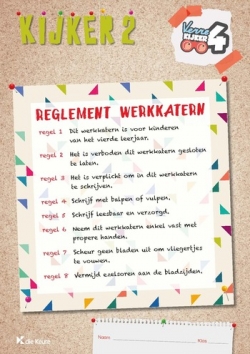 KIJKER 2
Verre
KIJKER 4
REGLEMENT WERKKATERN
regel 1 Dit werkkatern is voor kinderen
van het vierde leerjaar.
regel 2 Het is verboden dit werkkatern gesloten
te laten.
regel 3 Het is verplicht om in dit werkkatern
te schrijven.
regel 4 Schrijf met balpen of vulpen.
regel 5 Schrijf leesbaar en verzorgd.
regel 6 Neem dit werkkatern enkel vast met
propere handen.
regel 7 Scheur geen bladen uit om vliegertjes
te vouwen.
regel 8 Vermijd ezelsoren aan de bladzijden.
die Keure
Naam
Klas